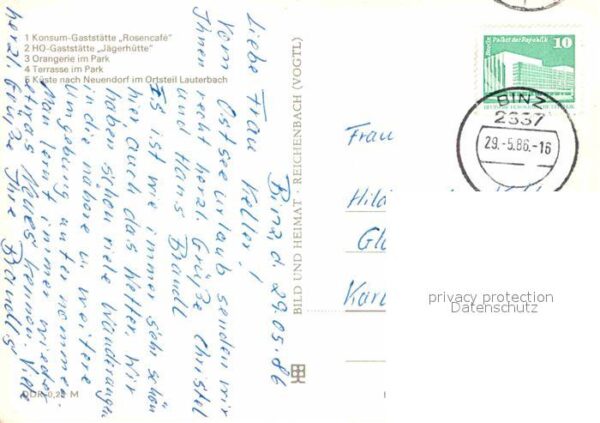 1 Konsum-Gaststätte „Rosencafé"
2 HO-Gaststätte „Jägerhütte"
3 Orangerie im Park
4 Terrasse im Park
5 Küste nach Neuendorf im Ortsteil Lauterbach
Binz d. 29.05.86
Liebe Frau Keller!
Vom Ostseeurlaub senden wir
Ihnen recht herzl. Grüße Christel
und Hans Brandl
Es ist wie immer sehr schön
hier auch das Wetter. Wir
haben schon viele Wanderungen
in die nähere u. weitere
Umgebung unternommen.
Man lernt immer wieder
etwas Neues kennen. Viele
herzl. Grüße Ihre Brandl's
DDR 0,25 M
BILD UND HEIMAT · REICHENBACH (VOGTL)
10
BINZ
2337
29.-5.86.-16
Frau
privacy protection
Datenschutz